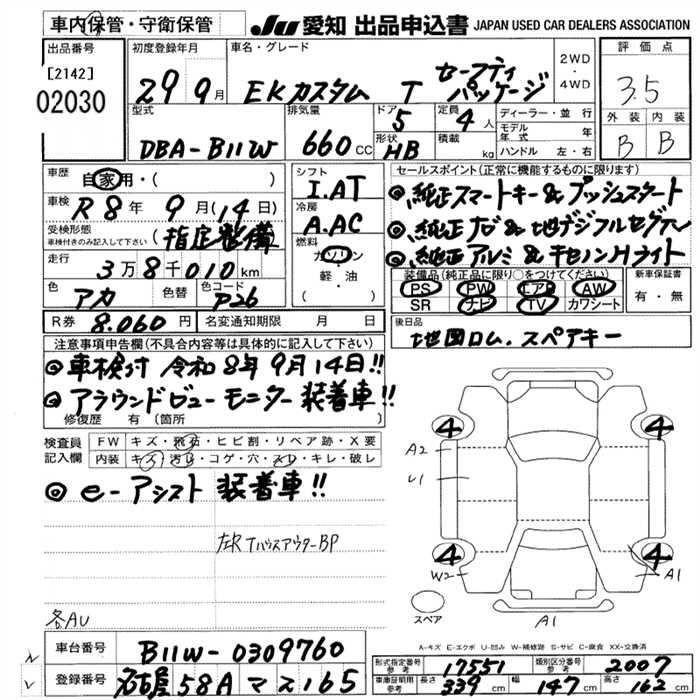 車内保管・守衛保管 JU 愛知 出品申込書 JAPAN USED CAR DEALERS ASSOCIATION
出品番号 初度登録年月 車名・グレード 2WD・4WD 評価点
[2142]
02030 29 9月 EKカスタム T セーフティパッケージ 3.5
型式 排気量 ドア 定員 ディーラー・並行 外装 内装
DBA-B11W 660cc 5 4人 モデル年式 年 B B
形状 HB 積載 kg ハンドル 左・右
車歴 自家用・( ) シフト I.AT セールスポイント(正常に機能するものに限ります)
車検 R8年9月(14日) 冷房 A.AC ◎純正スマートキー&プッシュスタート
受検形態 車検付きのみ記入して下さい (指定整備) 燃料 ガソリン・軽・油 ◎純正ナビ&地デジフルセグTV
走行 3万8千010km ◎純正アルミ&キセノンHライト
色 アカ 色替 色コード P26 装備品(純正品に限り○をつけてください) 新車保証書
PS PW エアB AW 有・無
SR ナビ TV カワシート
R券 8.060円 名変通知期限 月 日 後日品
地図ロム.スペアキー
注意事項申告欄(不具合内容等は具体的に記入して下さい)
◎車検付 令和8年9月14日!!
◎アラウンドビューモニター装着車!!
修復歴 有(箇所 )
検査員記入欄 FW キズ・飛石・ヒビ割・リペア跡・X要
内装 キズ・汚れ・コゲ・穴・スレ・キレ・破レ
◎e-アシスト装着車!!
左RTハウスアウターBP
各AU
4 4
A2
U1
4 4
W2 A1
スペア A1
A-キズ E-エクボ U-凹み W-補修跡 S-サビ C-腐食 XX-交換済
車台番号 B11W-0309760 形式指定番号 参考 17551 類別区分番号 参考 2007
登録番号 名古屋 58A マ 2165 車庫証明用 参考 長さ 339cm 幅 147cm 高さ 162cm